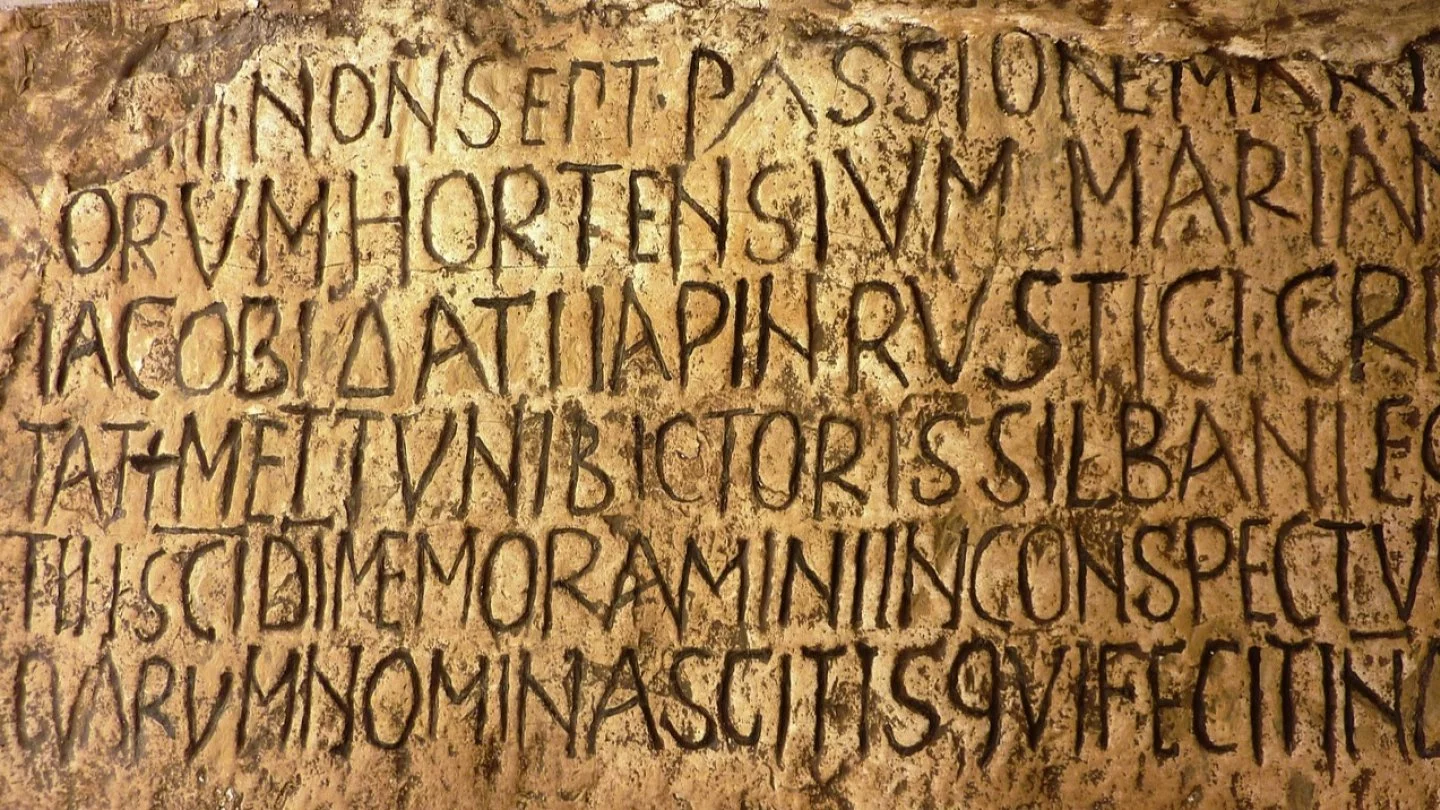 IIII NON SEPT · PASSIONE MART
ORVM HORTENSIVM MARIAN
IACOBI ΔATI IIAPIN RVSTICI CRI
TAT + METTVNI BICTORIS SILBANI EG
SCI DI MEMORAMINI IN CONSPECTV
QVARVM NOMINA SCITIS QVI FECIT IN